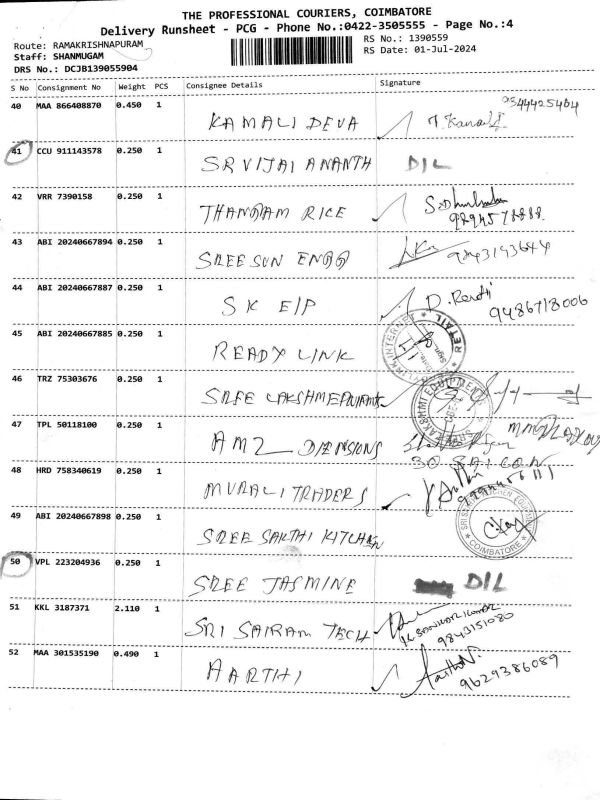 THE PROFESSIONAL COURIERS, COIMBATORE
Delivery Runsheet - PCG - Phone No.:0422-3505555 - Page No.:4
Route: RAMAKRISHNAPURAM
RS No.: 1390559
Staff: SHANMUGAM
RS Date: 01-Jul-2024
DRS No.: DCJB139055904
S No Consignment No Weight PCS Consignee Details Signature
40 MAA 866408870 0.450 1 KAMALI DEVA
41 CCU 911143578 0.250 1 SR VIJAI ANANTH DIL
42 VRR 7390158 0.250 1 THANGAM RICE
43 ABI 20240667894 0.250 1 SREE SUN ENGG 9843193644
44 ABI 20240667887 0.250 1 SK E/P 9486718006
45 ABI 20240667885 0.250 1 READY LINK RETAIL
46 TRZ 75303676 0.250 1 SREE
47 TPL 50118100 0.250 1 AM2 DIENSIONS
48 HRD 758340619 0.250 1 MURALI TRADERS
49 ABI 20240667898 0.250 1 SREE SAKTHI KITCHEN COIMBATORE
50 VPL 223204936 0.250 1 SREE JASMINE DIL
51 KKL 3187371 2.110 1 SRI SAIRAM TECH 9843151080
52 MAA 301535190 0.490 1 AARTHI 9629386089